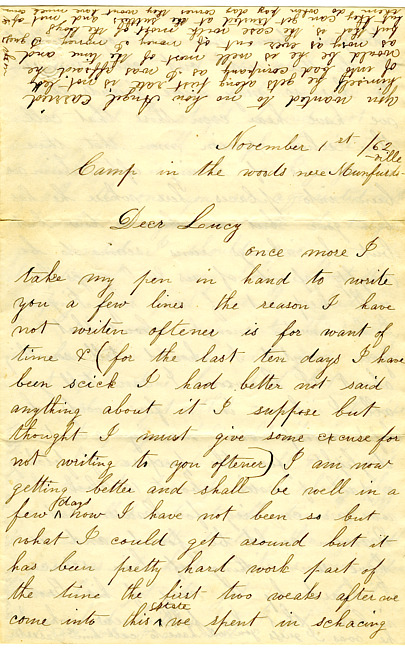 November 1st /62
Camp in the woods nere Munfords-
-ville
Deer Loucy
once more I
take my pen in hand to write
you a few lines the reason I have
not writen oftener is for want of
time & (for the last ten days I have
been scick I had better not said
anything about it I suppose but
thought I must give some excuse for
not writing to you oftener) I am now
getting better and shall be well in a
few days now I have not been so but
what I could get around but it
has been pretty hard work part of
the time the first two weaks after we
come into this state we spent in schacing
you wanted to no how Angel carried
himself he gets along first rate is not
into bad company as I was affraid he
would he he is well most of the time and
as mory as ever out of money I gess
but that is the case with most of the boys
but they can get trusted at the sutlers and most of
them do when pay day comes they wont have much